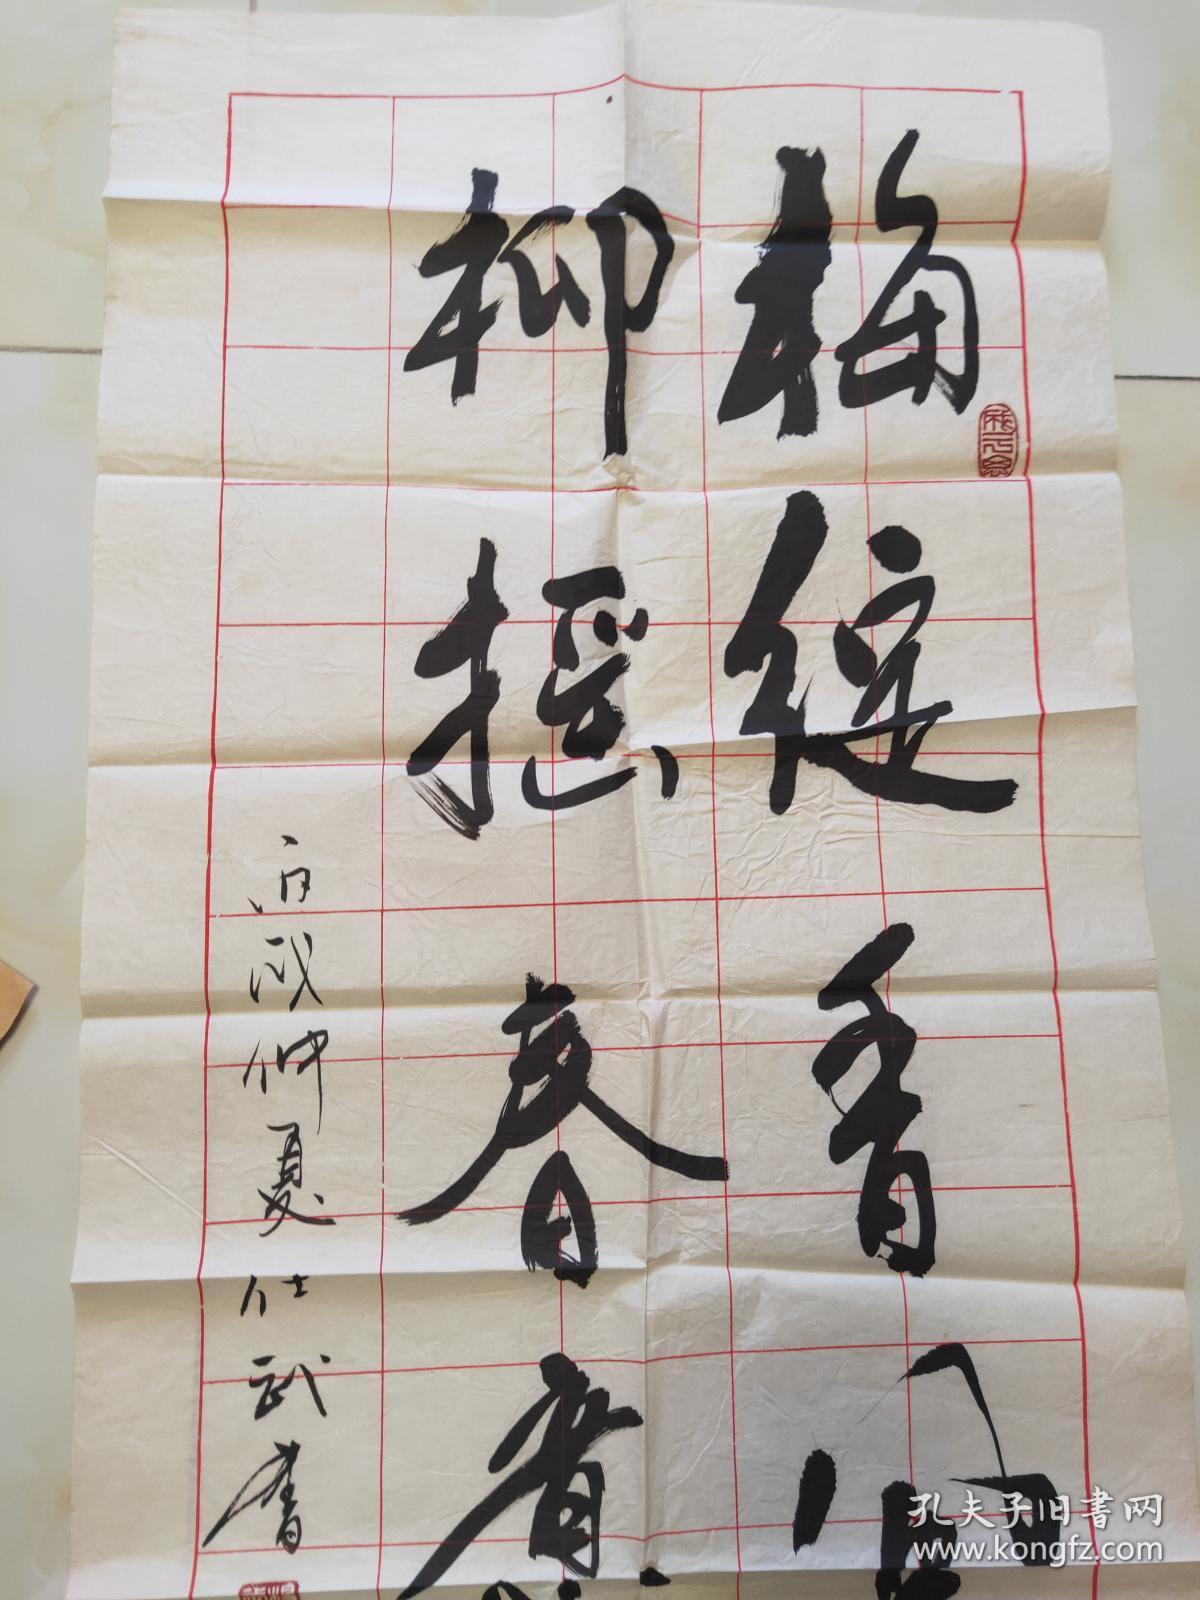 梅绽香
柳摇春意
戊仲夏仕武书
孔夫子旧书网
www.kongfz.com